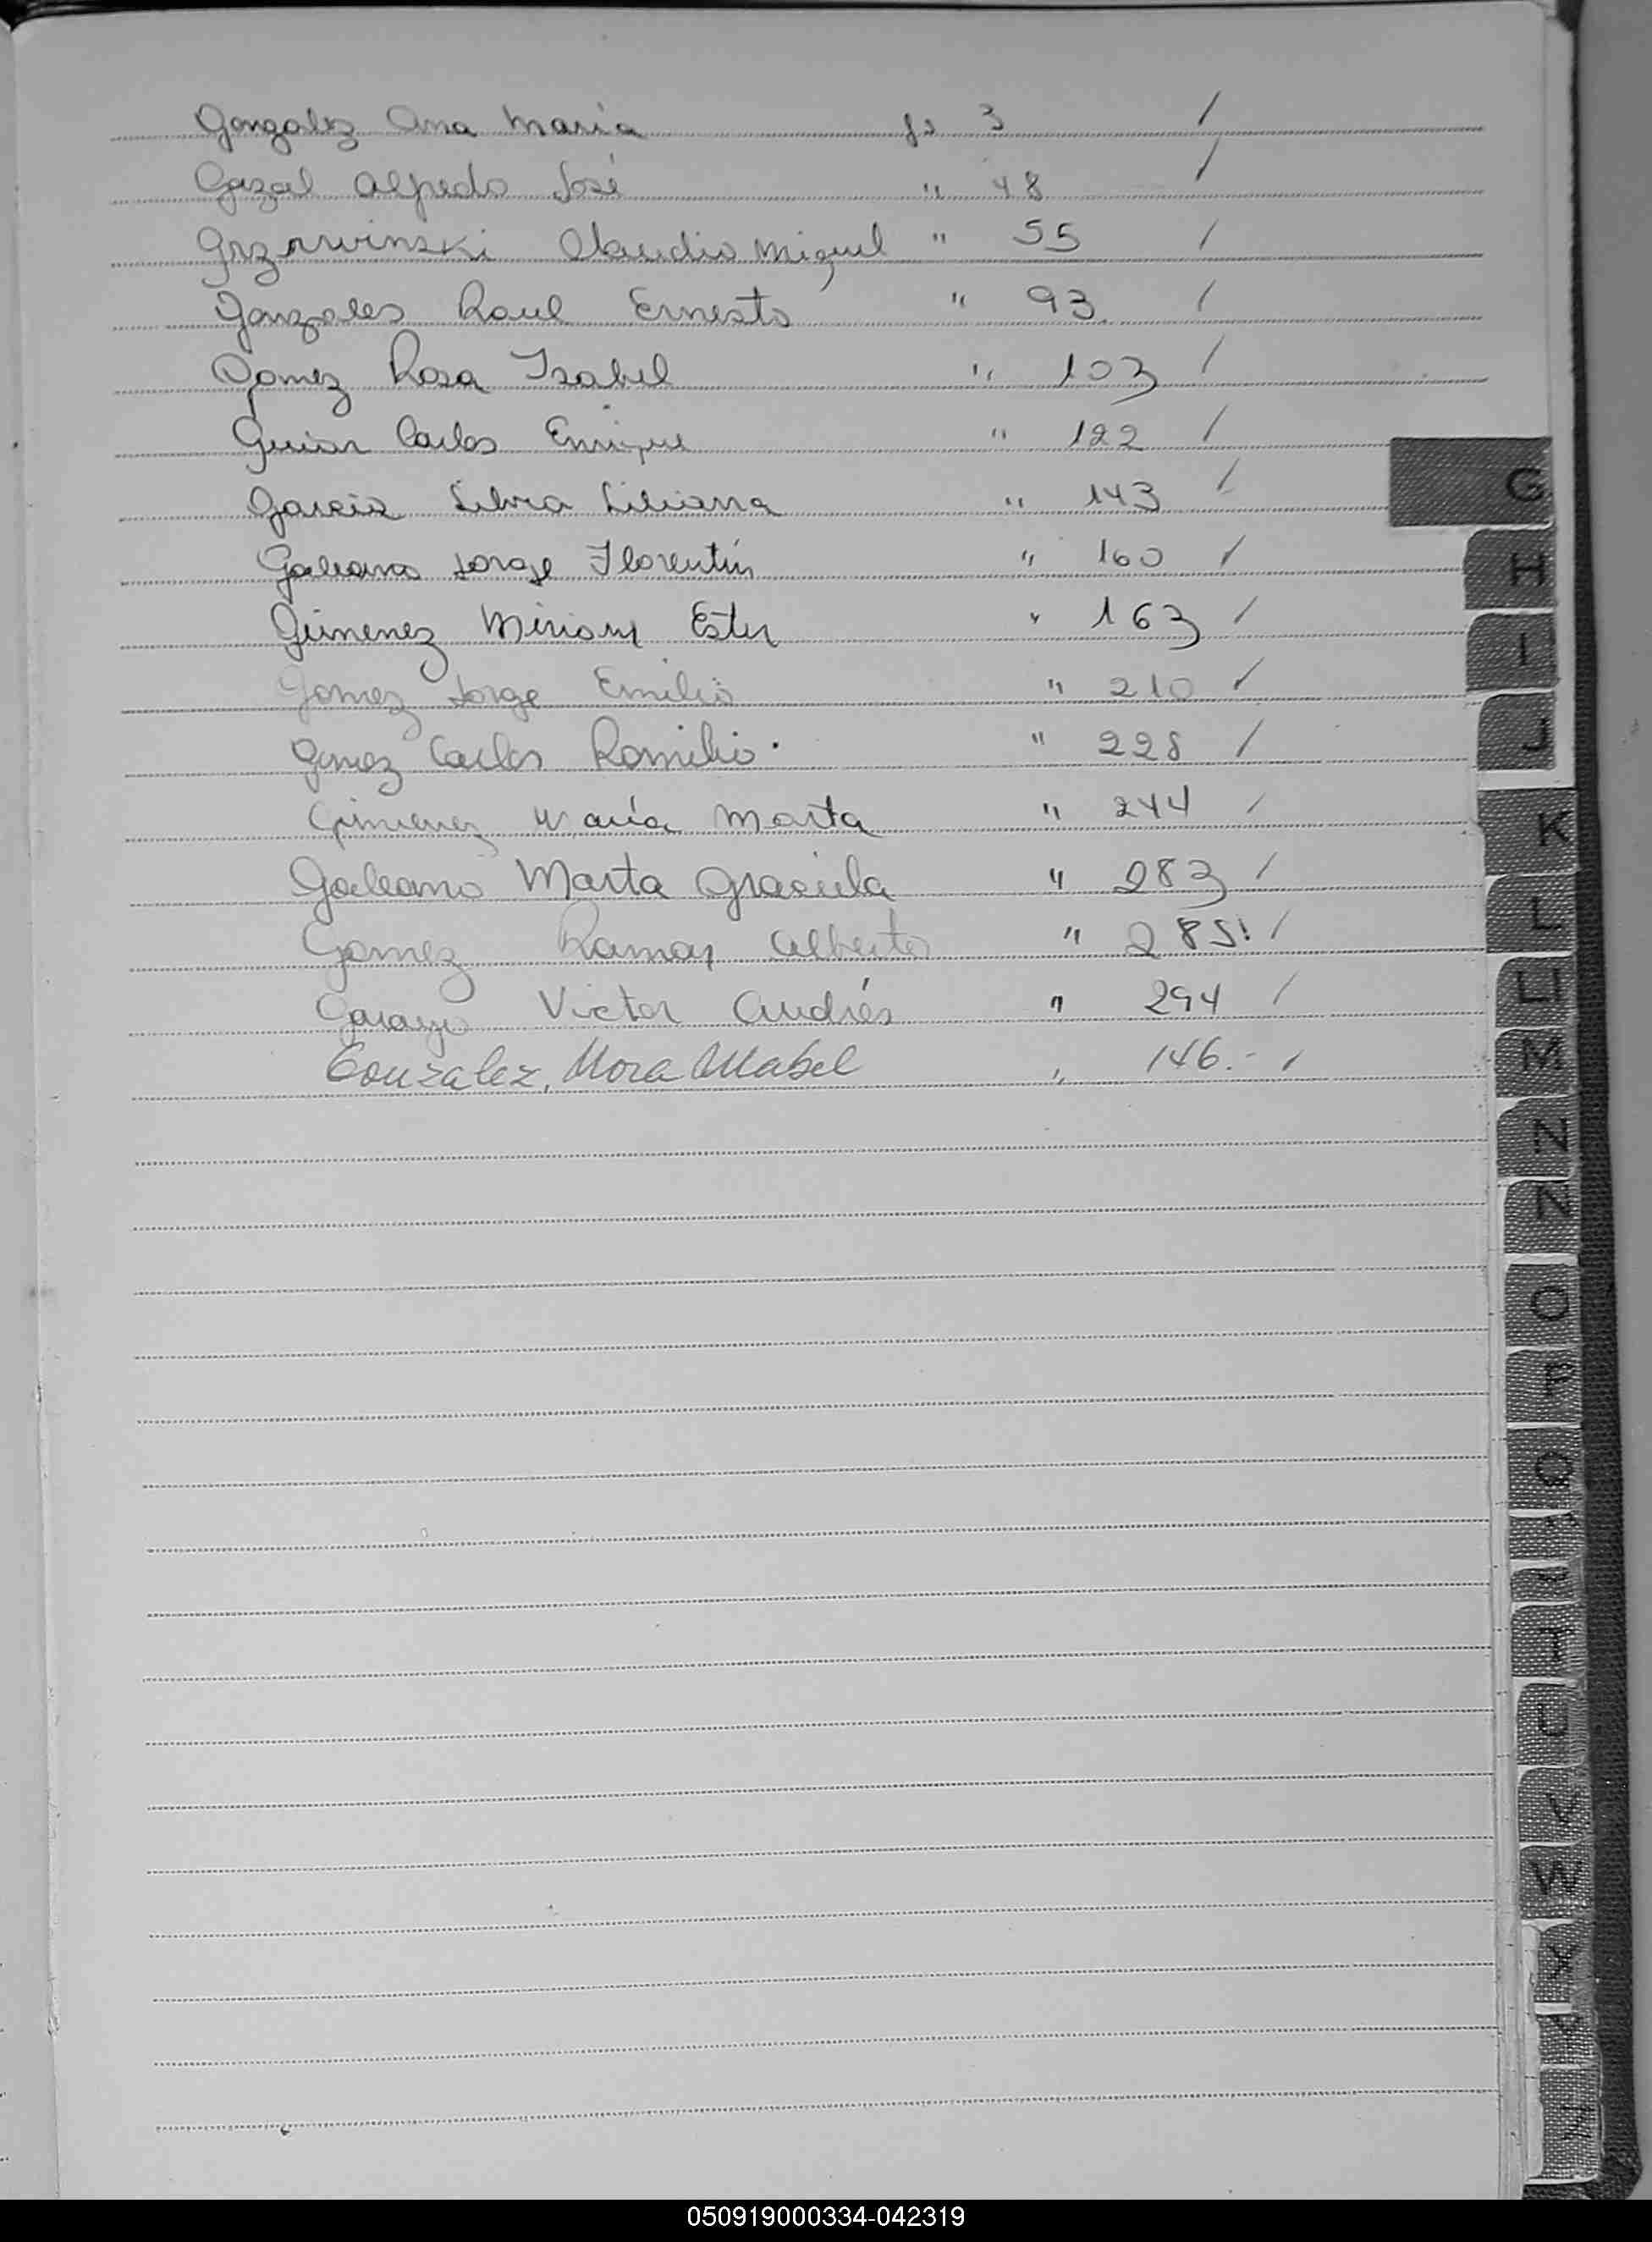 Gonzalez Ana Maria fs 3 /
Gazal Alfredo José " 48 /
Claudio Miguel " 55 /
Gonzales Raul Ernesto " 93. /
Gomez Rosa Isabel " 103 /
Carlos Enrique " 122 /
Garcia Silvia Liliana " 143 /
Galeano Jorge Florentín " 160 /
Gimenez Miriam Ester " 163 /
Gomez Jorge Emilio " 210 /
Gomez Carlos Romilio. " 228 /
Gimenez María Marta " 244 /
Galeano Marta Graciela " 283 /
Gomez Ramon Alberto " 285! /
Garayo Victor Andrés " 294 /
Gonzalez, Nora Mabel " 146.- /
G
H
I
J
K
L
LL
M
N
Ñ
O
P
Q
R
S
T
U
V
W
X
Y
Z
050919000334-042319